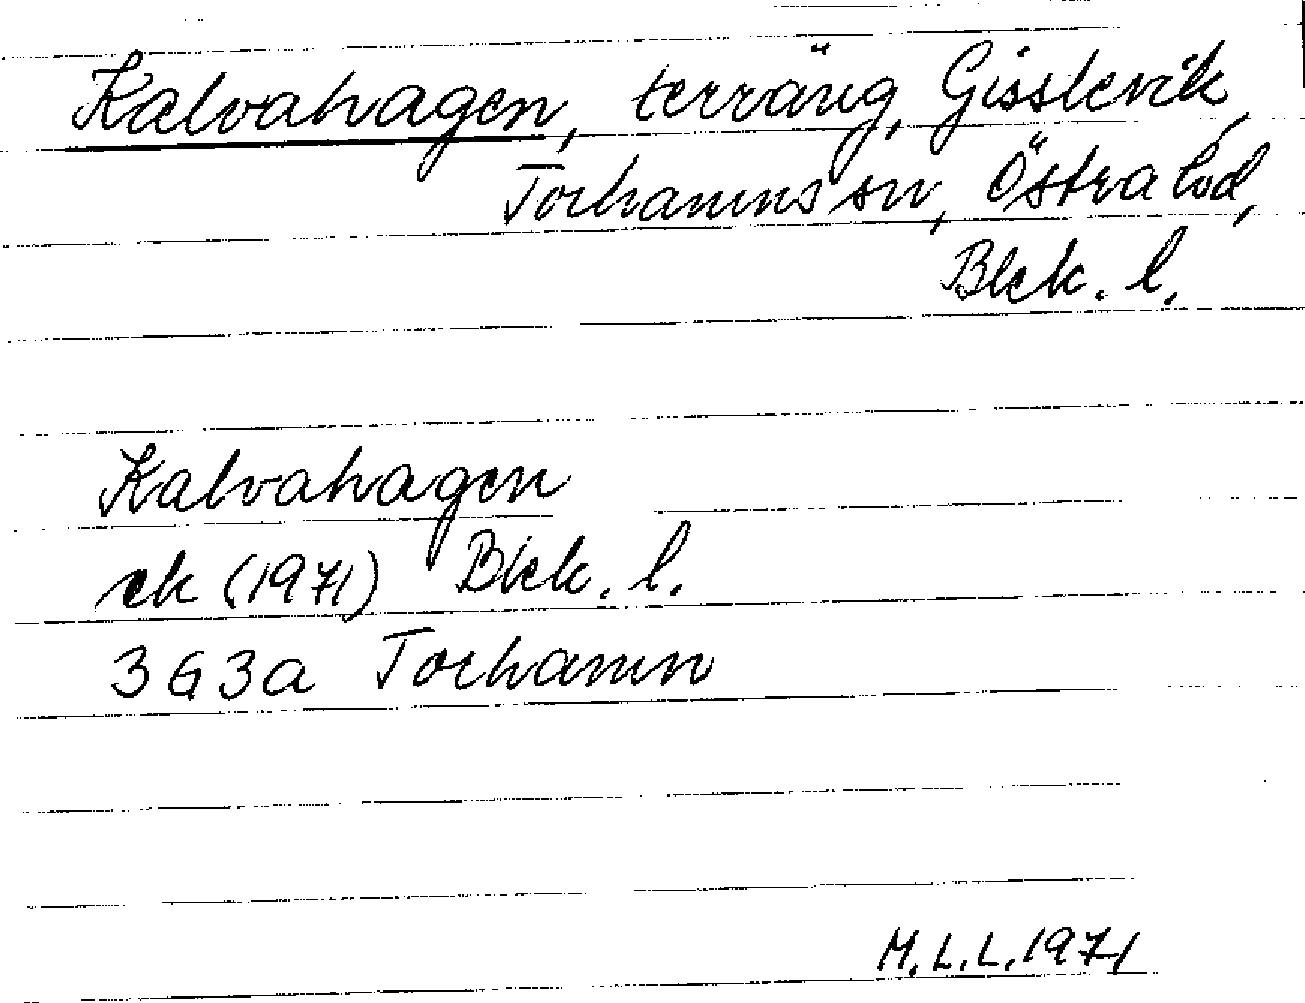 Kalvahagen, terräng, Gisslevik,
Torhamns sn, Östra hd,
Blek. l.
Kalvahagen
ek (1971) Blek. l.
3G3a Torhamn
M.L.L. 1971